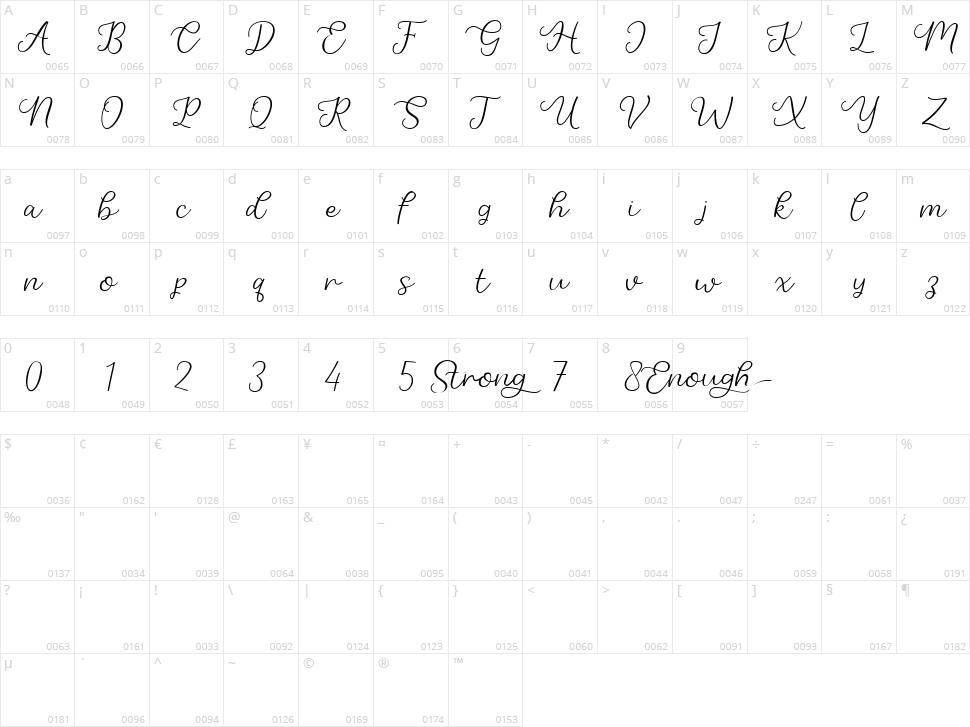 A B C D E F G H I J K L M
A B C D E F G H I J K L M
0065 0066 0067 0068 0069 0070 0071 0072 0073 0074 0075 0076 0077
N O P Q R S T U V W X Y Z
N O P Q R S T U V W X Y Z
0078 0079 0080 0081 0082 0083 0084 0085 0086 0087 0088 0089 0090
a b c d e f g h i j k l m
a b c d e f g h i j k l m
0097 0098 0099 0100 0101 0102 0103 0104 0105 0106 0107 0108 0109
n o p q r s t u v w x y z
n o p q r s t u v w x y z
0110 0111 0112 0113 0114 0115 0116 0117 0118 0119 0120 0121 0122
0 1 2 3 4 5 6 7 8 9
0 1 2 3 4 5 Strong 7 8 Enough
0048 0049 0050 0051 0052 0053 0054 0055 0056 0057
$ ¢ € £ ¥ ¤ + - * / ÷ = %
0036 0162 0128 0163 0165 0164 0043 0045 0042 0047 0247 0061 0037
‰ " ' @ & _ ( ) , . ; : ¿
0137 0034 0039 0064 0038 0095 0040 0041 0044 0046 0059 0058 0191
? ¡ ! \ | { } < > [ ] § ¶
0063 0161 0033 0092 0124 0123 0125 0060 0062 0091 0093 0167 0182
µ ` ^ ~ © ® ™
0181 0096 0094 0126 0169 0174 0153